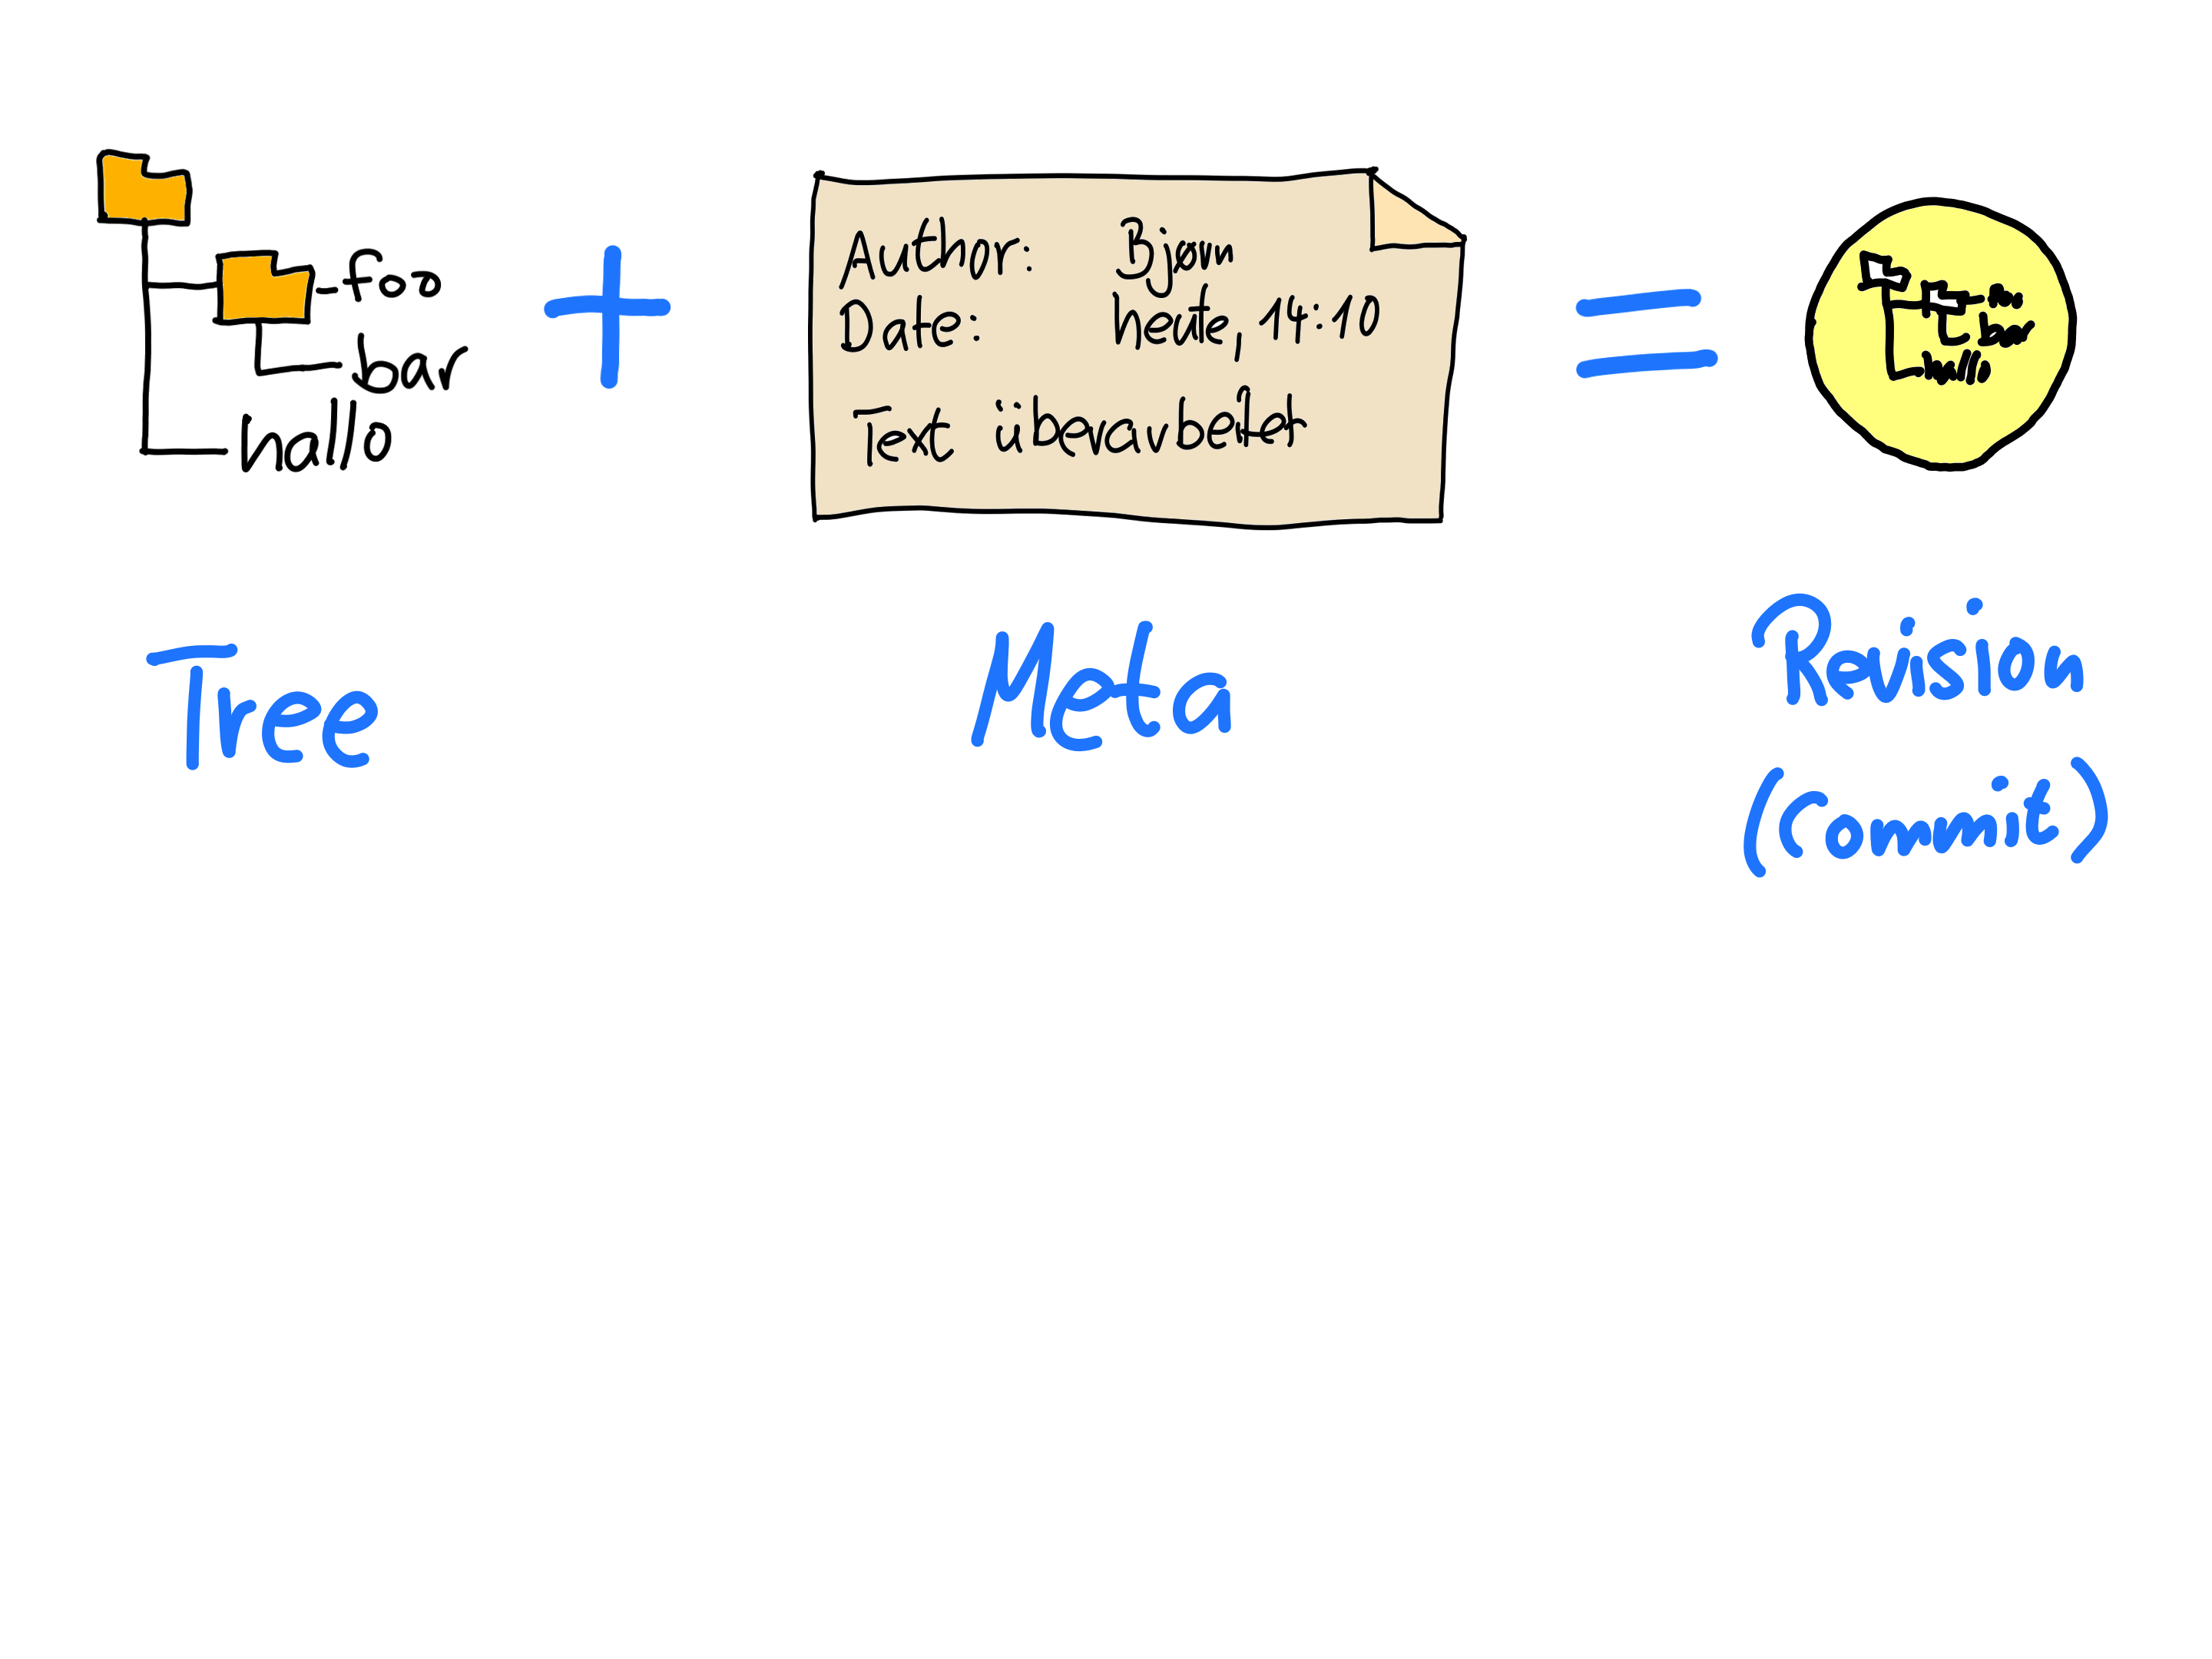 foo
bar
hallo
+
Author: Bjørn
Date: heute, 14:10
Text überarbeitet
=
foo
bar
hallo
Tree
Meta
Revision
(Commit)